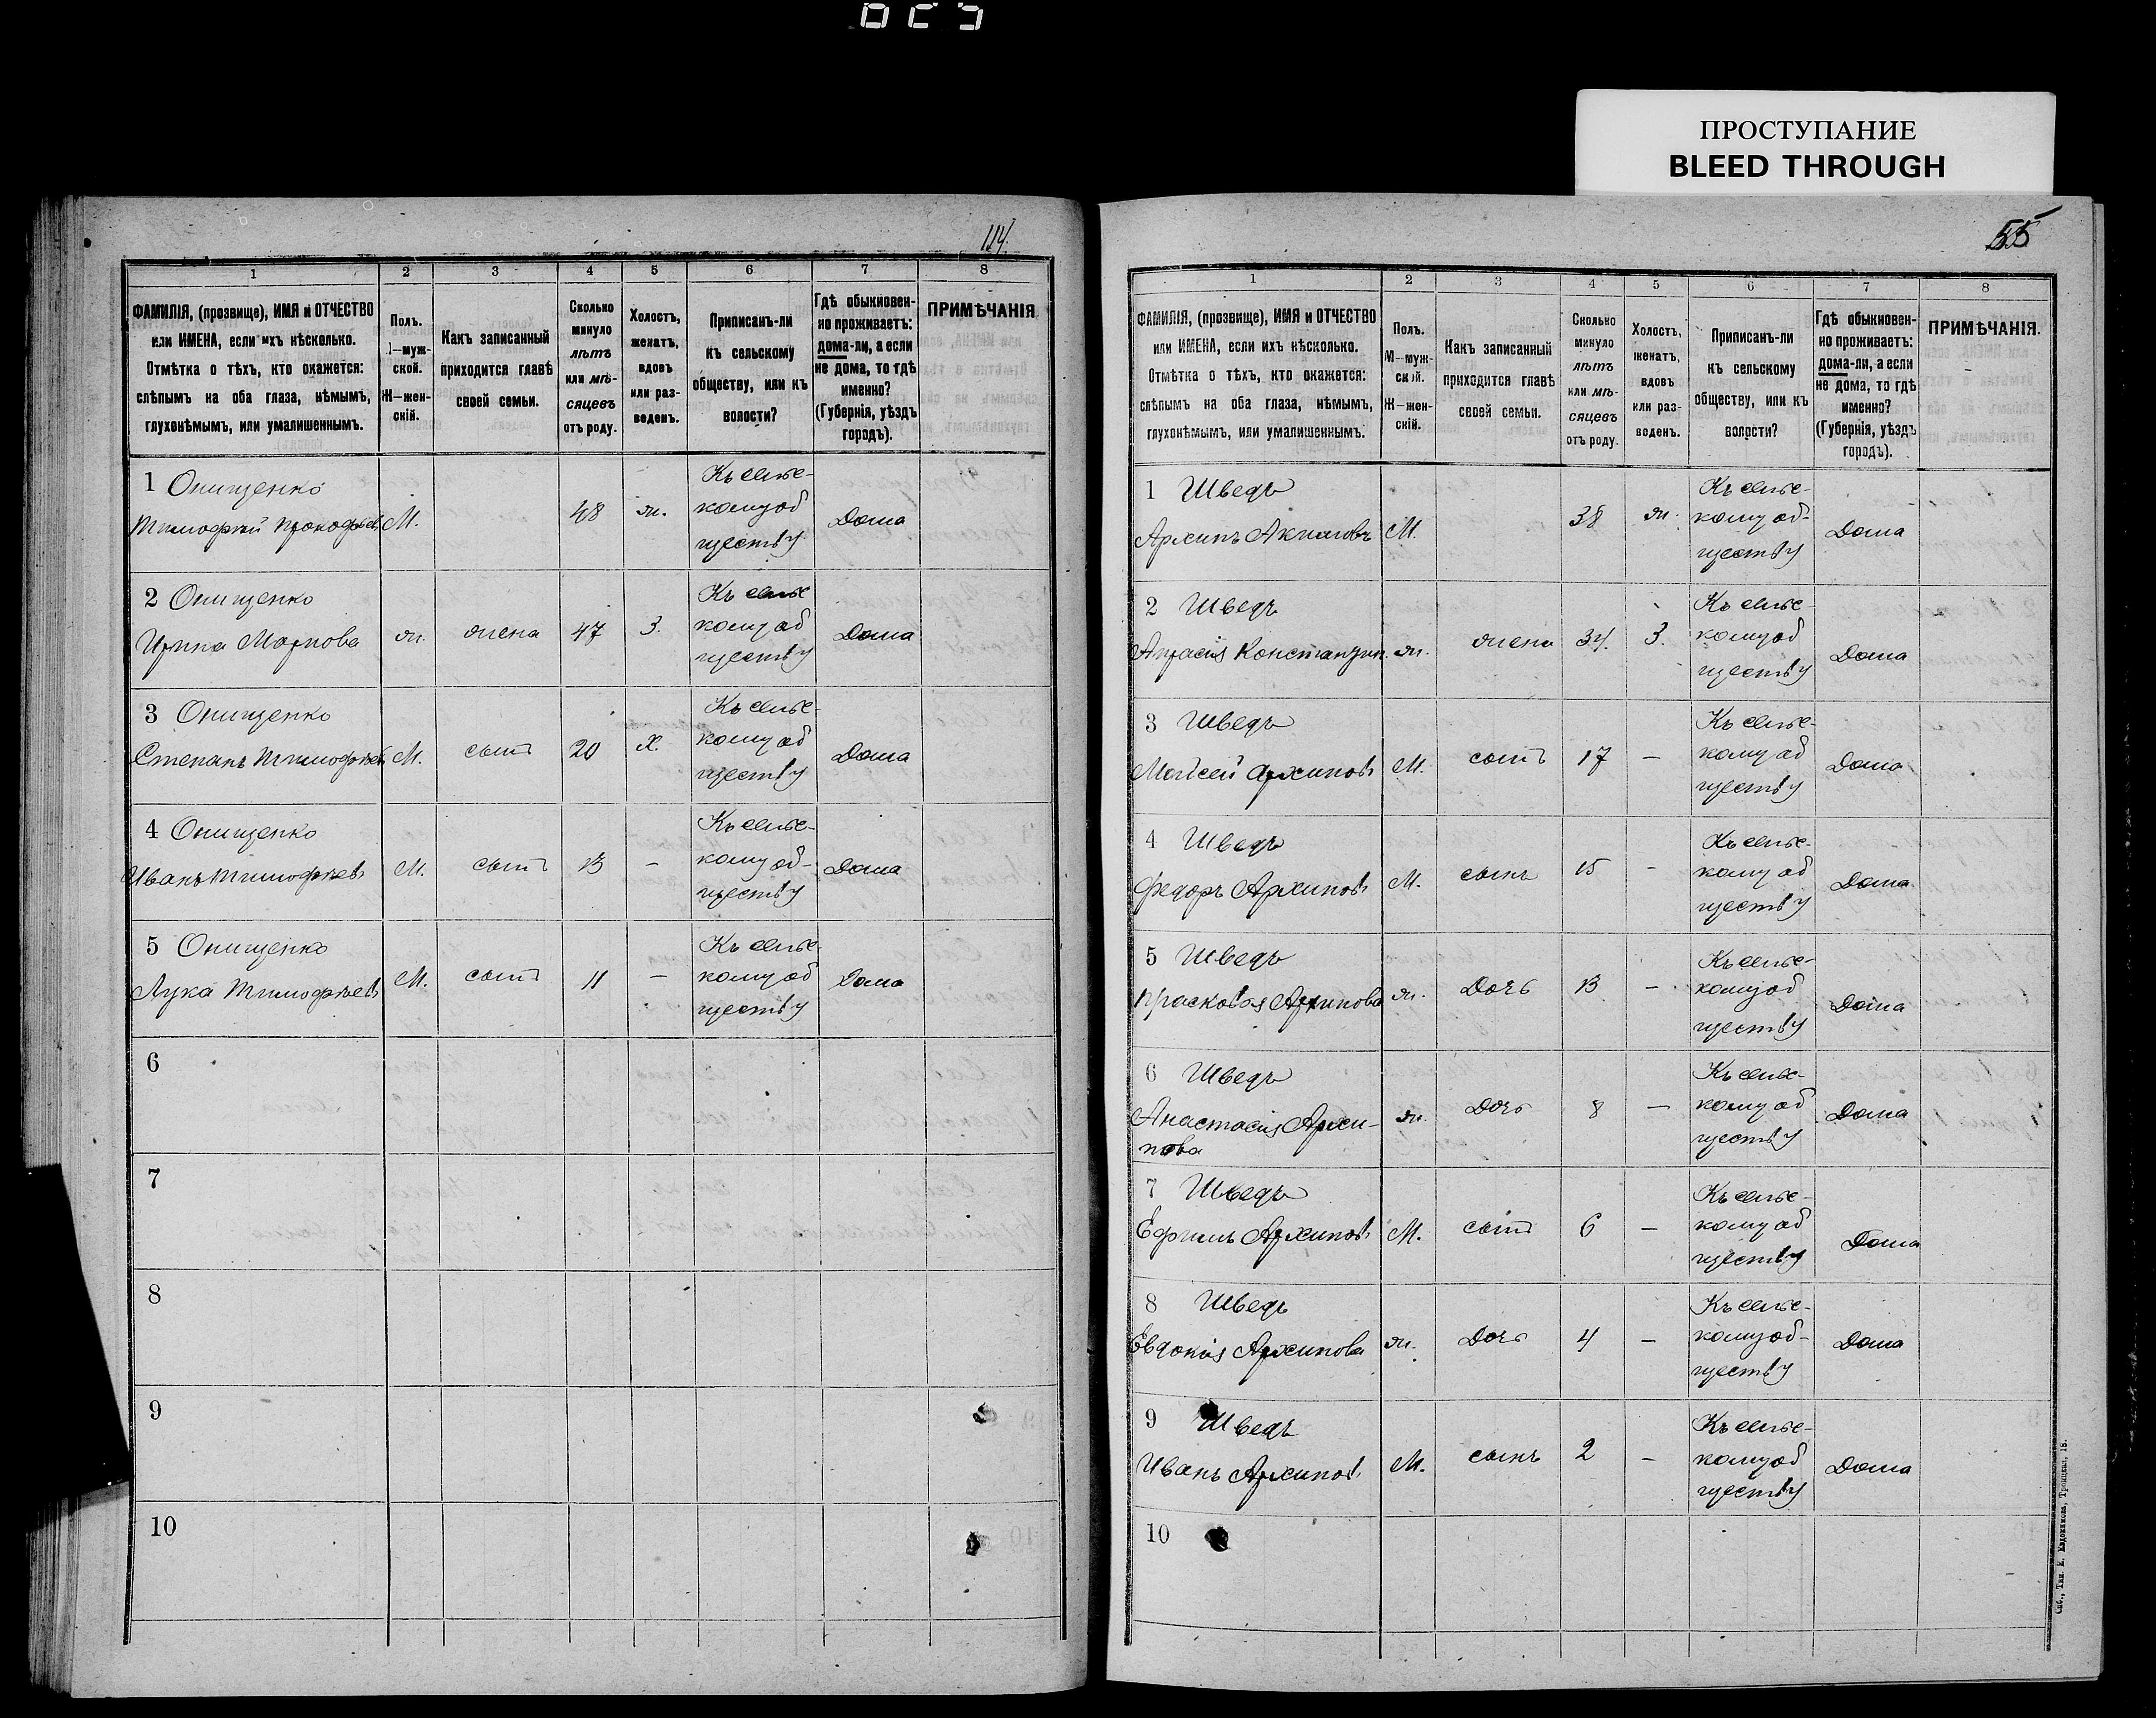 ПРОСТУПАНИЕ
BLEED THROUGH
114.
1 2 3 4 5 6 7 8
ФАМИЛІЯ, (прозвище), ИМЯ и ОТЧЕСТВО
или ИМЕНА, если ихъ нѣсколько.
Отмѣтка о тѣхъ, кто окажется:
слѣпымъ на оба глаза, нѣмымъ,
глухонѣмымъ, или умалишеннымъ.
Полъ.
М—муж-
ской.
Ж—жен-
скій.
Какъ записанный
приходится главѣ
своей семьи.
Сколько
минуло
лѣтъ
или мѣ-
сяцевъ
отъ роду.
Холостъ,
женатъ,
вдовъ
или раз-
веденъ.
Приписанъ-ли
къ сельскому
обществу, или къ
волости?
Гдѣ обыкновен-
но проживаетъ:
дома-ли, а если
не дома, то гдѣ
именно?
(Губернія, уѣздъ
городъ).
ПРИМѢЧАНІЯ
1 Онищенко
Тимофей Прокофьев М. 48 ж. Къ сельс-
кому об
ществу Дома
2 Онищенко
Ирина Маркова ж. жена 47 З. Къ сельс
кому об
ществу Дома
3 Онищенко
Степанъ Тимофѣевъ М. сынъ 20 Х. Къ сельс-
кому об
ществу Дома
4 Онищенко
Иванъ Тимофѣевъ М. сынъ 13 – Къ сельс-
кому об-
ществу Дома
5 Онищенко
Лука Тимофѣевъ М. сынъ 11 – Къ сельс-
кому об
ществу Дома
6
7
8
9
10
55
1 2 3 4 5 6 7 8
ФАМИЛІЯ, (прозвище), ИМЯ и ОТЧЕСТВО
или ИМЕНА, если ихъ нѣсколько.
Отмѣтка о тѣхъ, кто окажется:
слѣпымъ на оба глаза, нѣмымъ,
глухонѣмымъ, или умалишеннымъ.
Полъ.
М—муж-
ской.
Ж—жен-
скій.
Какъ записанный
приходится главѣ
своей семьи.
Сколько
минуло
лѣтъ
или мѣ-
сяцевъ
отъ роду.
Холостъ,
женатъ,
вдовъ
или раз-
веденъ.
Приписанъ-ли
къ сельскому
обществу, или къ
волости?
Гдѣ обыкновен-
но проживаетъ:
дома-ли, а если
не дома, то гдѣ
именно?
(Губернія, уѣздъ
городъ).
ПРИМѢЧАНІЯ.
1 Шведъ
Архипъ Акимовъ М. 38 ж. Къ сельс-
кому об-
ществу Дома
2 Шведъ
Апрасія Константин. ж. жена 34. З. Къ сельс-
кому об
ществу Дома
3 Шведъ
Мойсей Архиповъ М. сынъ 17 – Къ сельс-
кому об
ществу Дома
4 Шведъ
Федоръ Архиповъ М. сынъ 15 – Къ сельс-
кому об
ществу Дома
5 Шведъ
Прасковья Архипова ж. Дочь 13 – Къ сельс-
кому об
ществу Дома
6 Шведъ
Анастасія Архи-
пова ж. Дочь 8 – Къ сельс-
кому об
ществу Дома
7 Шведъ
Ефимъ Архиповъ М. сынъ 6 – Къ сельс-
кому об
ществу Дома
8 Шведъ
Евдокія Архипова ж. Дочь 4 – Къ сельс-
кому об-
ществу Дома
9 Шведъ
Иванъ Архиповъ М. сынъ 2 – Къ сельс-
кому об
ществу Дома
10
Спб., Тип. Е. Евдокимова, Троицкая, 18.